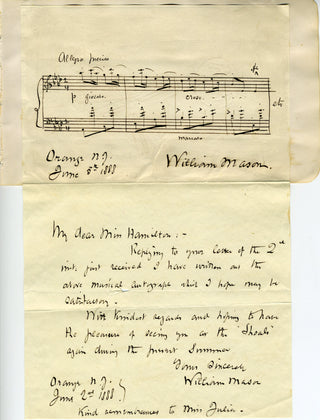 Allegro
p giocoso cresc.
etc
marcato
Orange N.J.
June 5th 1888
William Mason.
My dear Miss Hamilton:-
Replying to your letter of the 2nd
inst. just received I have written out the
above musical autograph which I hope may be
satisfactory.
With kindest regards and hoping to have
the pleasure of seeing you at the "Shoals"
again during the present Summer
Yours Sincerely
William Mason
Orange N.J.
June 2nd 1888
Kind remembrances to Miss Julia.